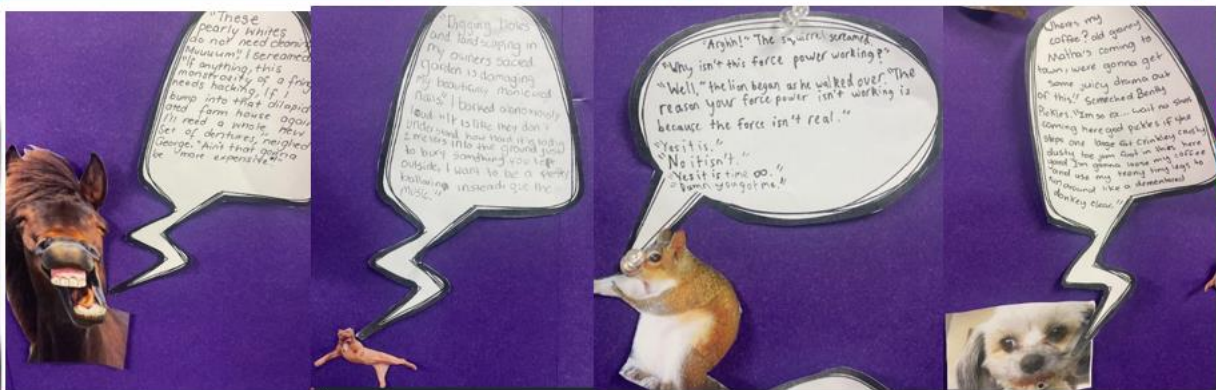 "These
pearly whites
do not need cleaning
Muuuum," I screamed
"If anything, this
monstrosity of a fringe
needs hacking, If I
bump into that dilapid
ated farm house again
I'll need a whole new
Set of dentures, neighed
George. "Ain't that gonna
be more expensive?"
"Digging holes
and landscaping in
my owners sacred
garden is damaging
my beautifully manicured
nails" I barked
loud. "It is like they don't
understand how hard it is going
2 meters into the ground just
to bury something you
outside, I want to be a
ballarina instead, que the
music."
"Arghh!" The squirrel screamed.
"Why isn't this force power working?"
"Well," the lion began as he walked over. "The
reason your force power isn't working is
because the force isn't real."
"Yes it is."
"No it isn't."
"Yes it is time ∞."
"Damn you got me."
Where's my
coffee? old granny
Matha's coming to
town, were gonna get
some juicy drama out
of this." Screeched Benty
Pickles. "Im so ex... wait no shoes
coming here gud pickles if you
steps one large fat crinkley crusty
dusty toe jam foot in this here
yard I'm gonna loose my coffee
and use my teany tiny legs to
run around like a demented
donkey clear."